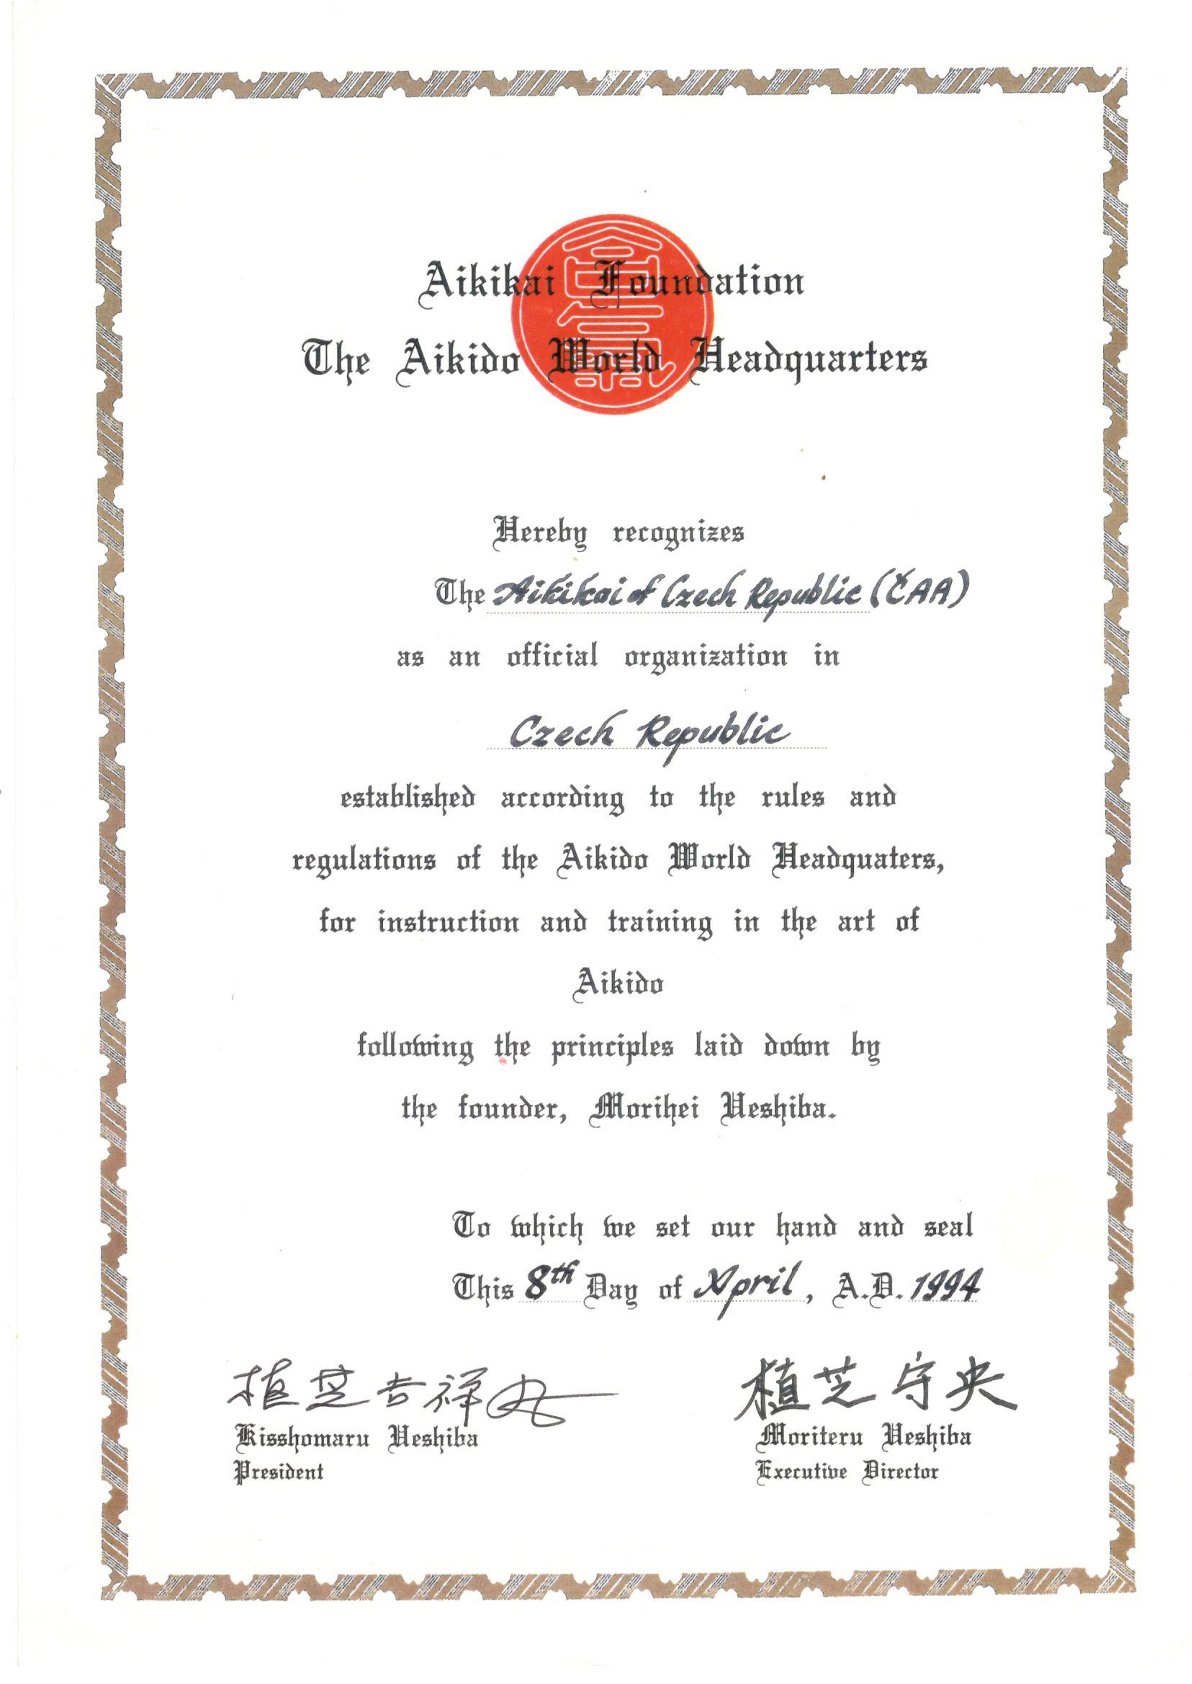 Aikikai Foundation
The Aikido World Headquarters
Hereby recognizes
The Aikikai of Czech Republic (ČAA)
as an official organization in
Czech Republic
established according to the rules and
regulations of the Aikido World Headquaters,
for instruction and training in the art of
Aikido
following the principles laid down by
the founder, Morihei Ueshiba.
To which we set our hand and seal
This 8th Day of April, A.D. 1994
植芝吉祥丸 植芝守央
Kisshomaru Ueshiba Moriteru Ueshiba
President Executive Director